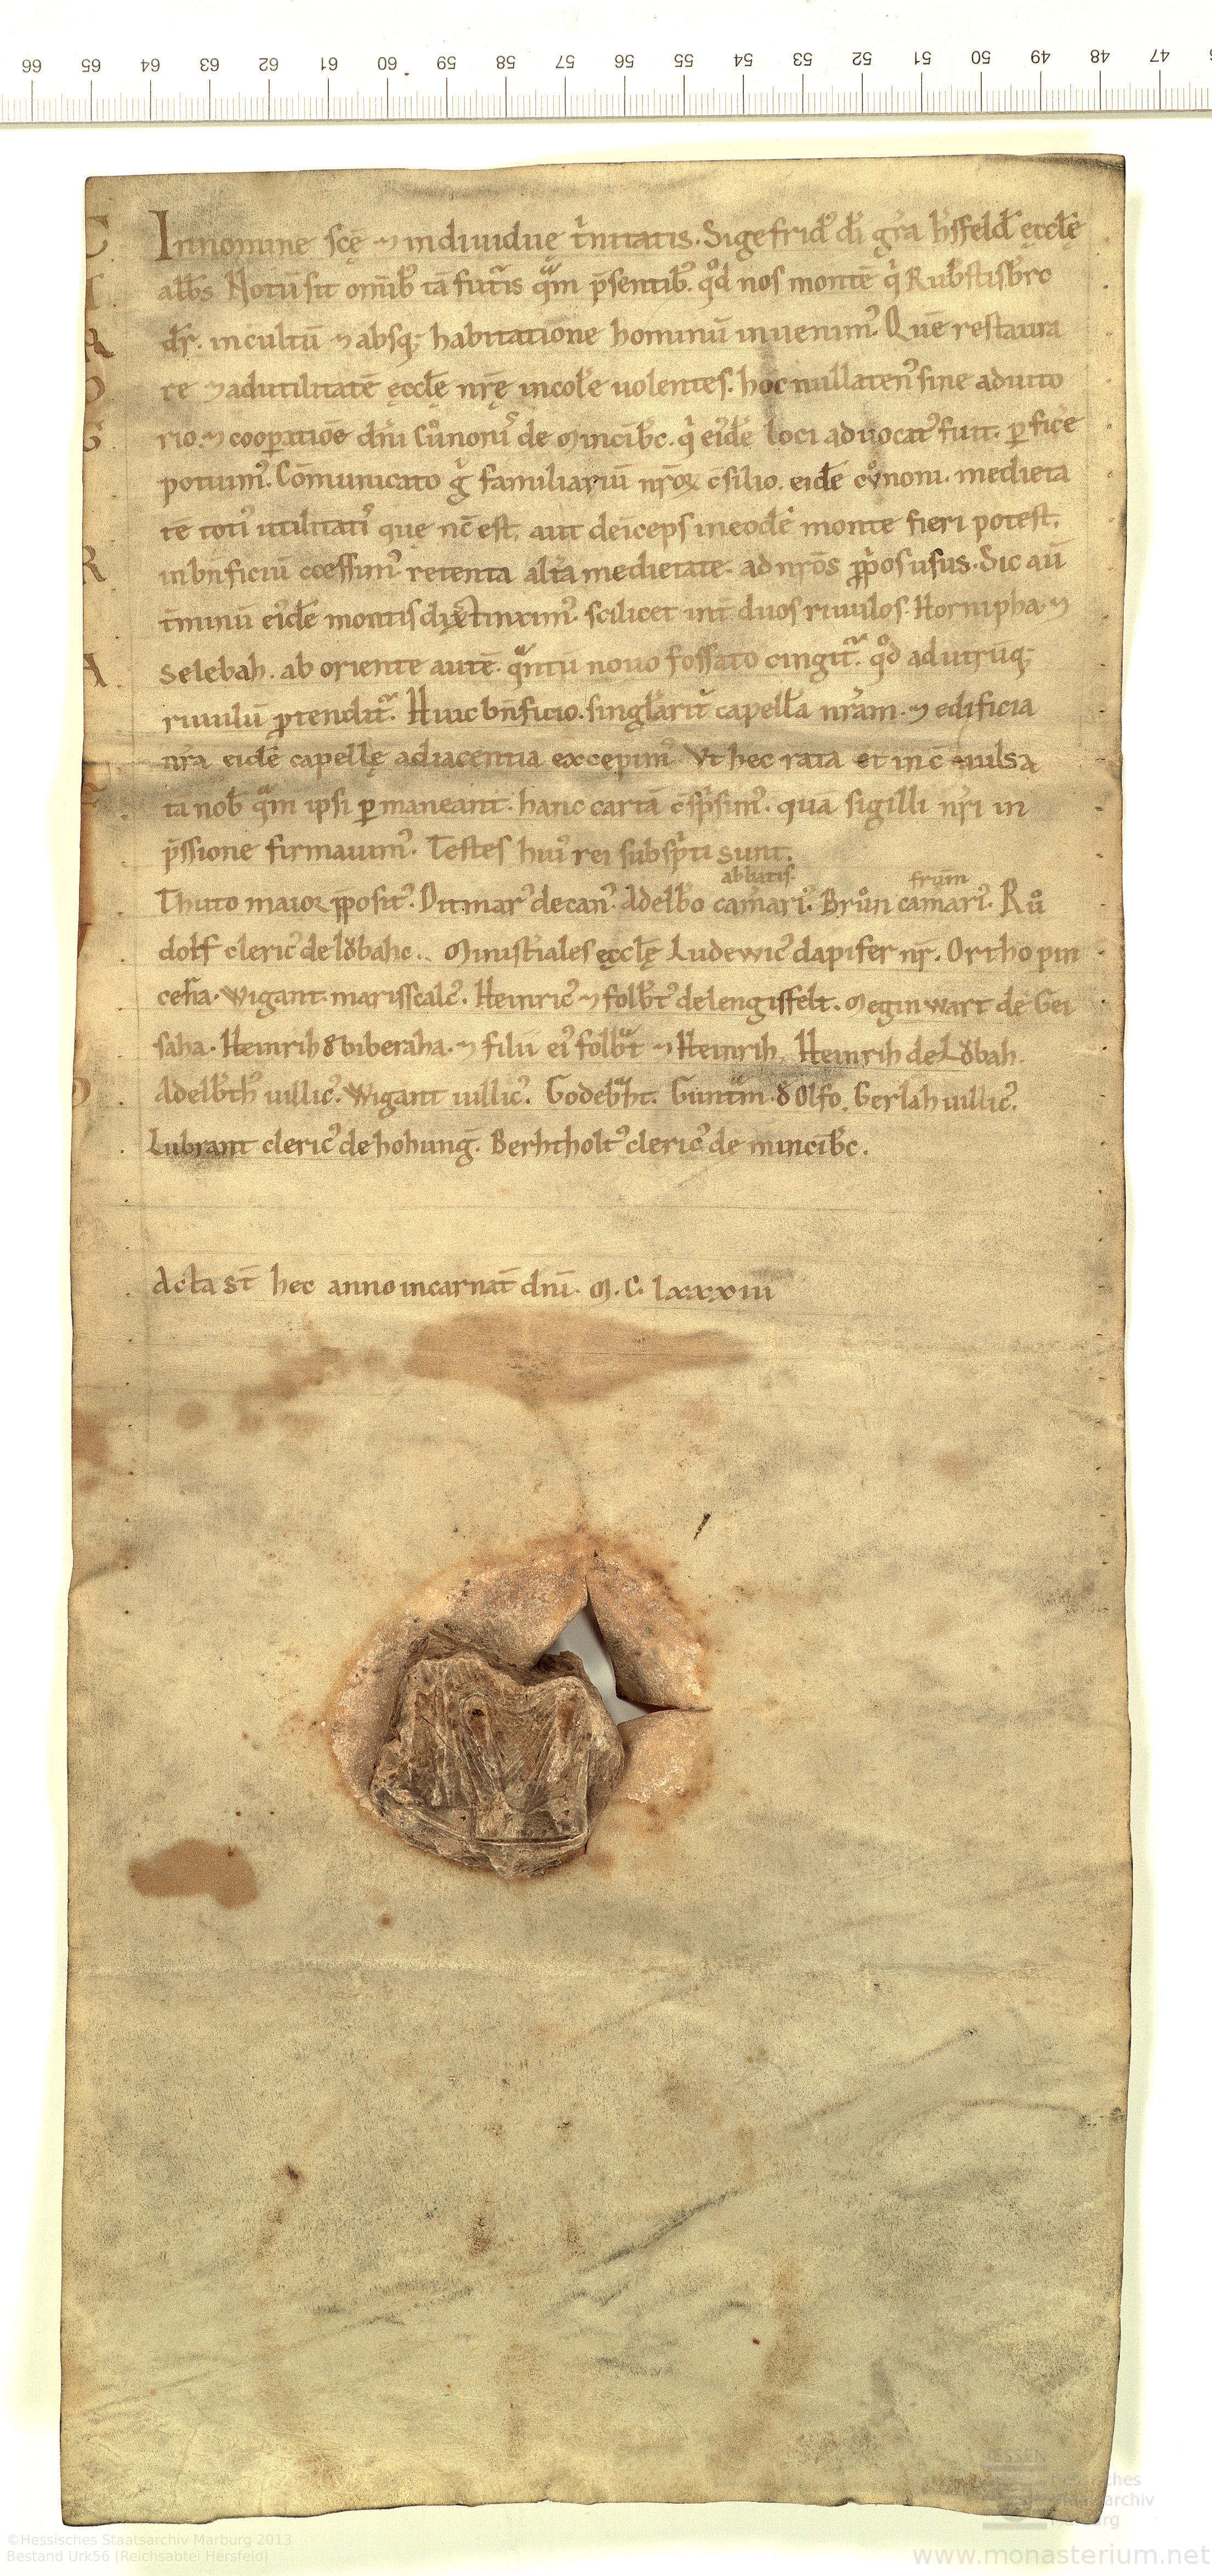 In nomine scę ⁊ indiuiduę t̓nitatis. Sigefrid᷒ dī gr̄a h̓sfeld̄ ęccłę
abb̄s Notū sit omīb᷒ tā futuris qͣm p̄sentib᷒. qͦd nos montē q̓ Rub̓stisb̓rc
dr̄. incultū ⁊ absq; habitatione hominū inuenim᷒. Quē restaura
re ⁊ ad utilitatē ęccłę nr̄ę incol̓e uolentes. hoc nullaten᷒ sine adiuto
rio. ⁊ coopatiōe dn̄i Cuͦnoni᷒ de Mincīb̓c. q̓ ei᷒dē loci aduocat᷒ fuit. ꝑfic̓e
potuim᷒. Cōmunicato g̓ familiariū nr̄oꝝ c̄silio. eidē cuͦnoni. medieta
tē toti᷒ utilitati᷒ quę nc̄ est, aut deīceps in eodē monte fieri potest.
in bn̄ficiū ccessim᷒. retenta alt̓a medietate. ad nr̄os ꝓp̓os usus. Sic aū
t̓minū ei᷒dē montis distinxim᷒. scilicet int̄ duos riuulos. Hornipha. ⁊
Selebah. ab oriente autē. qͣntū nouo fossato cingit᷒. qͦd ad utrūq;
riuulū ꝓtendit᷒. Huic bn̄ficio. singlarit̓ capellā nr̄am. ⁊ edificia
nr̄a eidē capellę adiacentia excepim᷒. Vt hec rata et inc̄uulsa
tā nob̄ qͣm ipsi ꝑmaneant. hanc cartā c̄sp̓sim᷒. quā sigilli nr̄i in
p̄ssione firmauim᷒. Testes hui᷒ rei subsp̓ti sunt.
abbatis. frum̄
Thuto maior p̄posit᷒. Ditmar᷒ decan᷒. Adelb̓o cam̄ari᷒. Bruͦn cam̄ari᷒. Ruͦ
dolf cleric᷒ de loͮbahc. Minist̓iales ęccłę Ludewic᷒ dapifer nr̄. Ortho pin
cerna. Wigant. marisscalc᷒. Heinric᷒ ⁊ folb̓t᷒ de lengisfelt. Meginwart de Gei
saha. Heinrih ꝺ biberaha. ⁊ filii ei᷒ folb̓t ⁊ Heinrih. Heinrih de Loͮbah.
Adelb̓th᷒ uillic᷒. Wigant uillic᷒. Godeb̓ht. Guntm̄. ꝺ Olfo. Gerlah uillic᷒.
Lubrant cleric᷒ de hohung̅. Berhtholt᷒ cleric᷒ de mincīb̓c.
Acta st̄ hec anno incarnat̄ dn̄i. M. C. lxxxiii
66 65 64 63 62 61 60 59 58 57 56 55 54 53 52 51 50 49 48 47
©Hessisches Staatsarchiv Marburg 2013
Bestand Urk56 (Reichsabtei Hersfeld)
www.monasterium.net